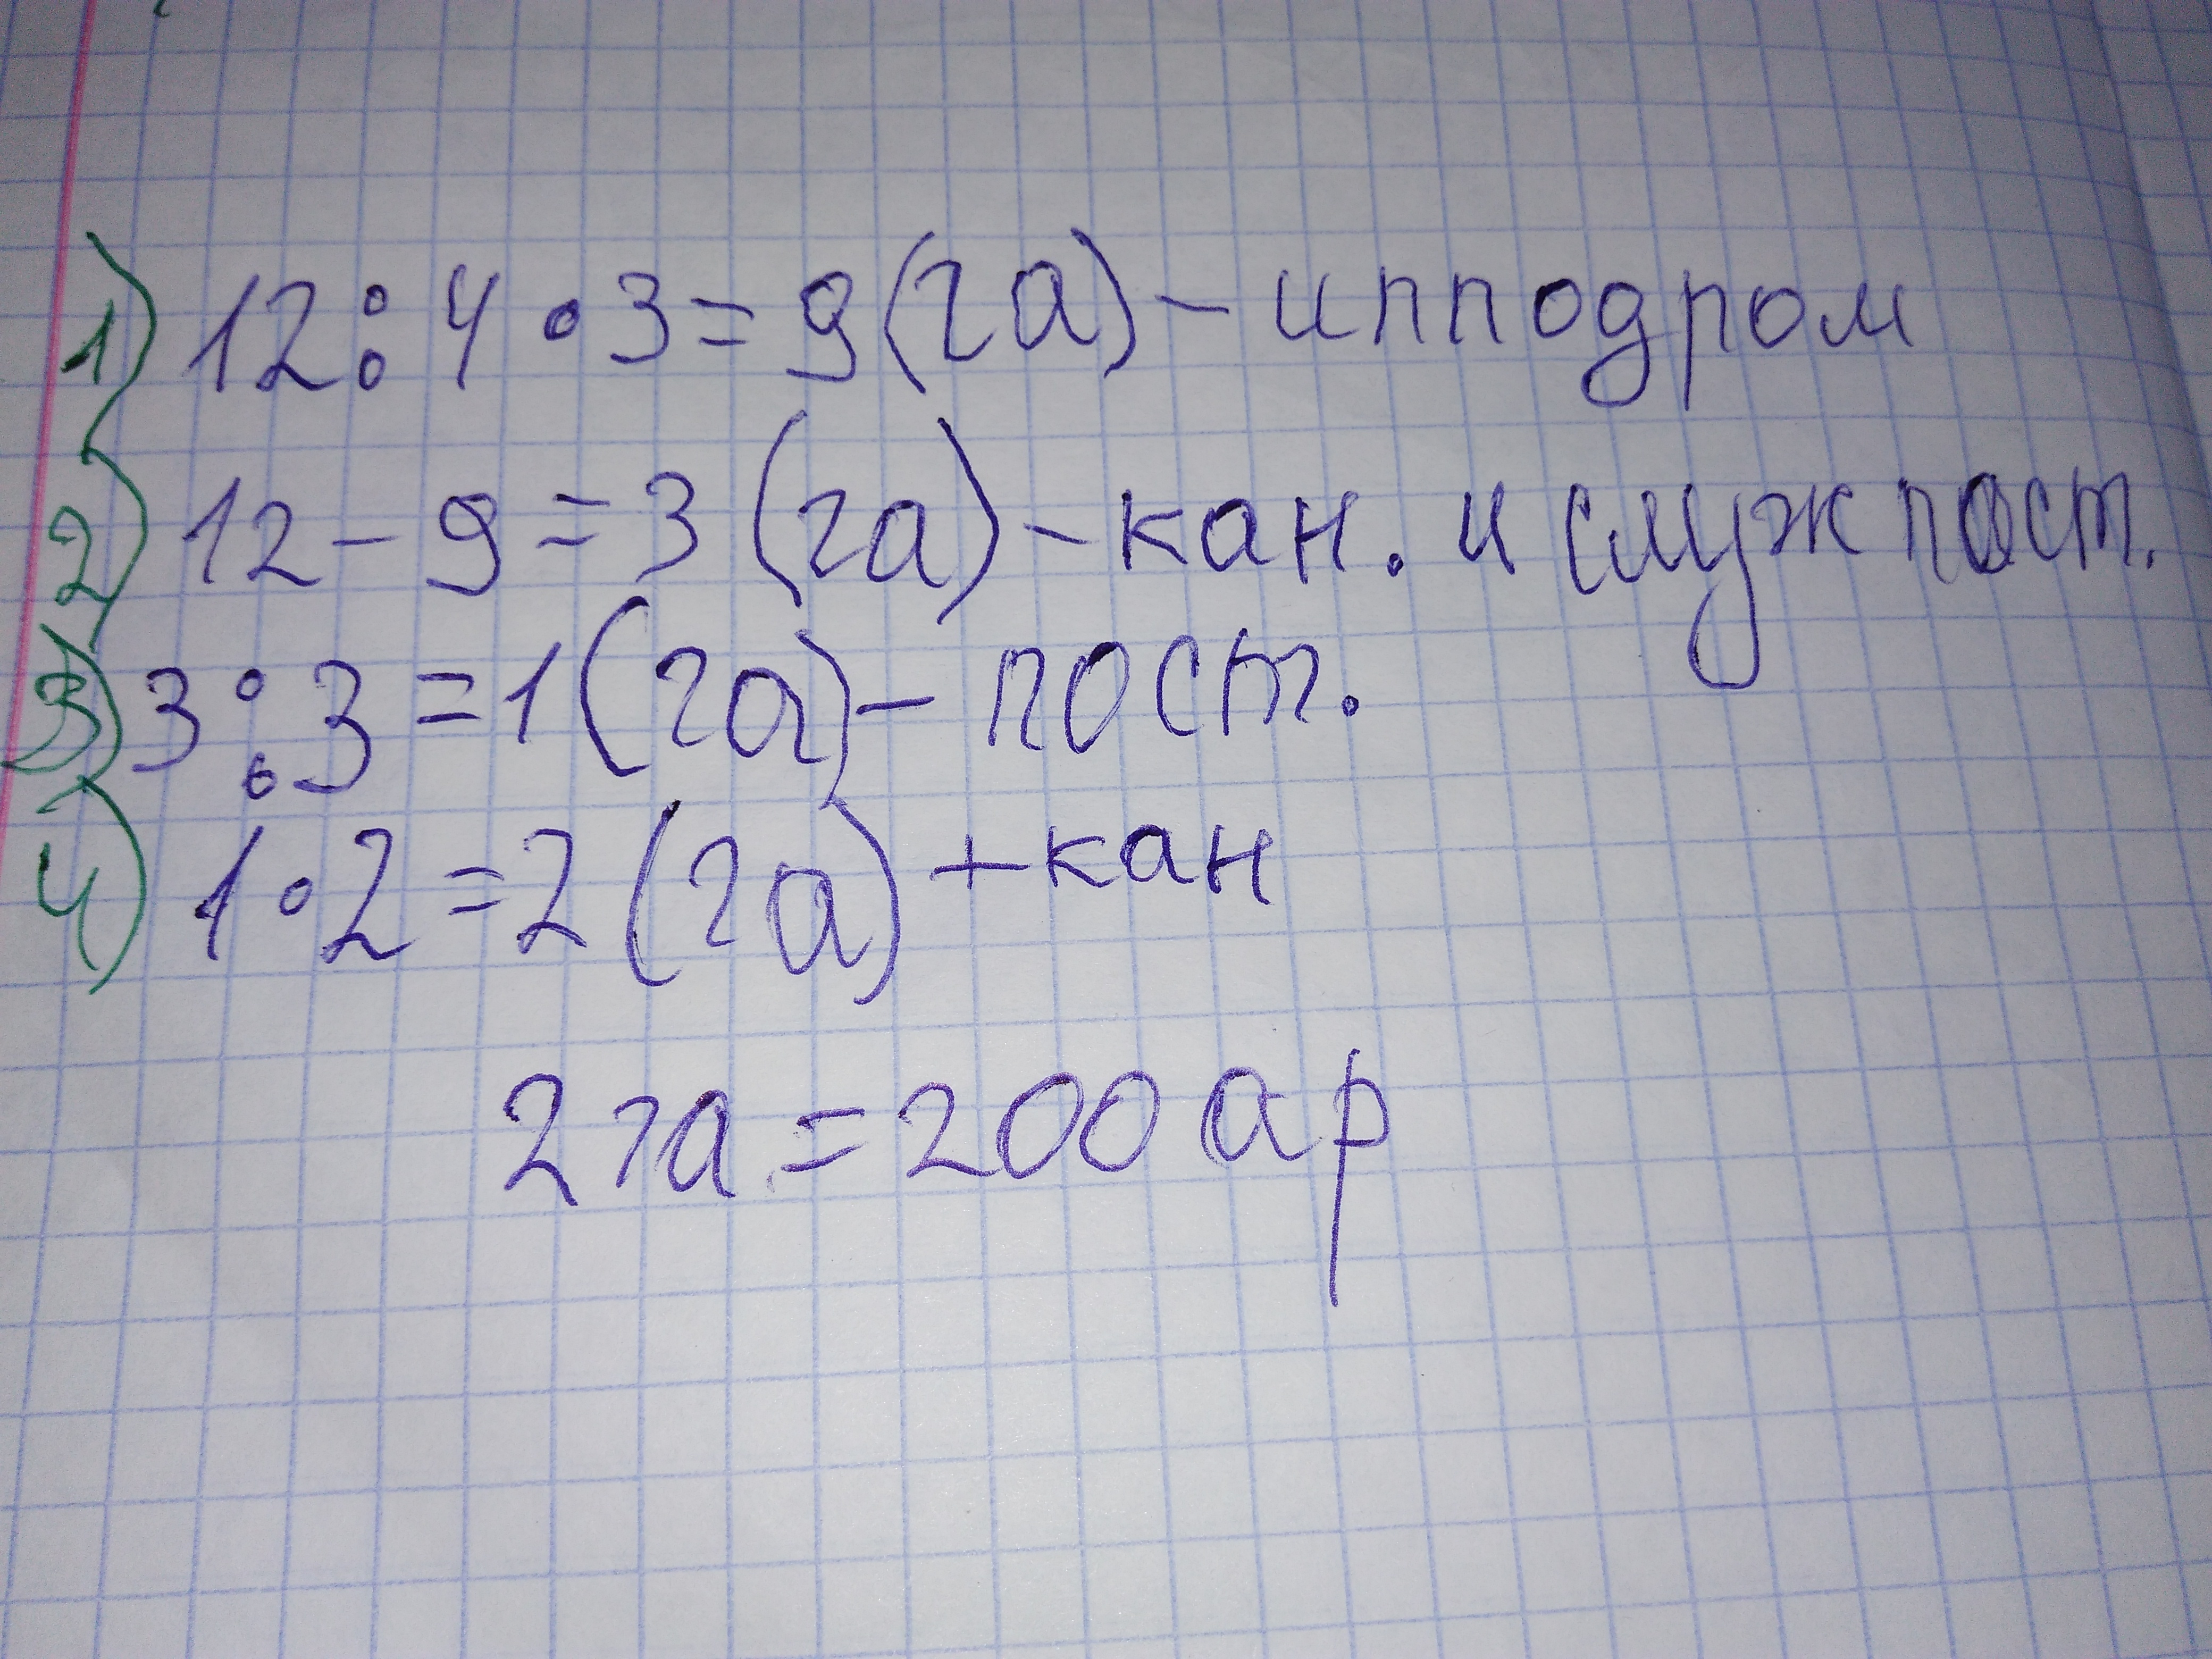 1) 12 : 4 • 3 = 9 (га) - ипподром
2) 12 - 9 = 3 (га) - кан. и служ пост.
3) 3 : 3 = 1 (га) - пост.
4) 1 • 2 = 2 (га) + кан
2 га = 200 ар